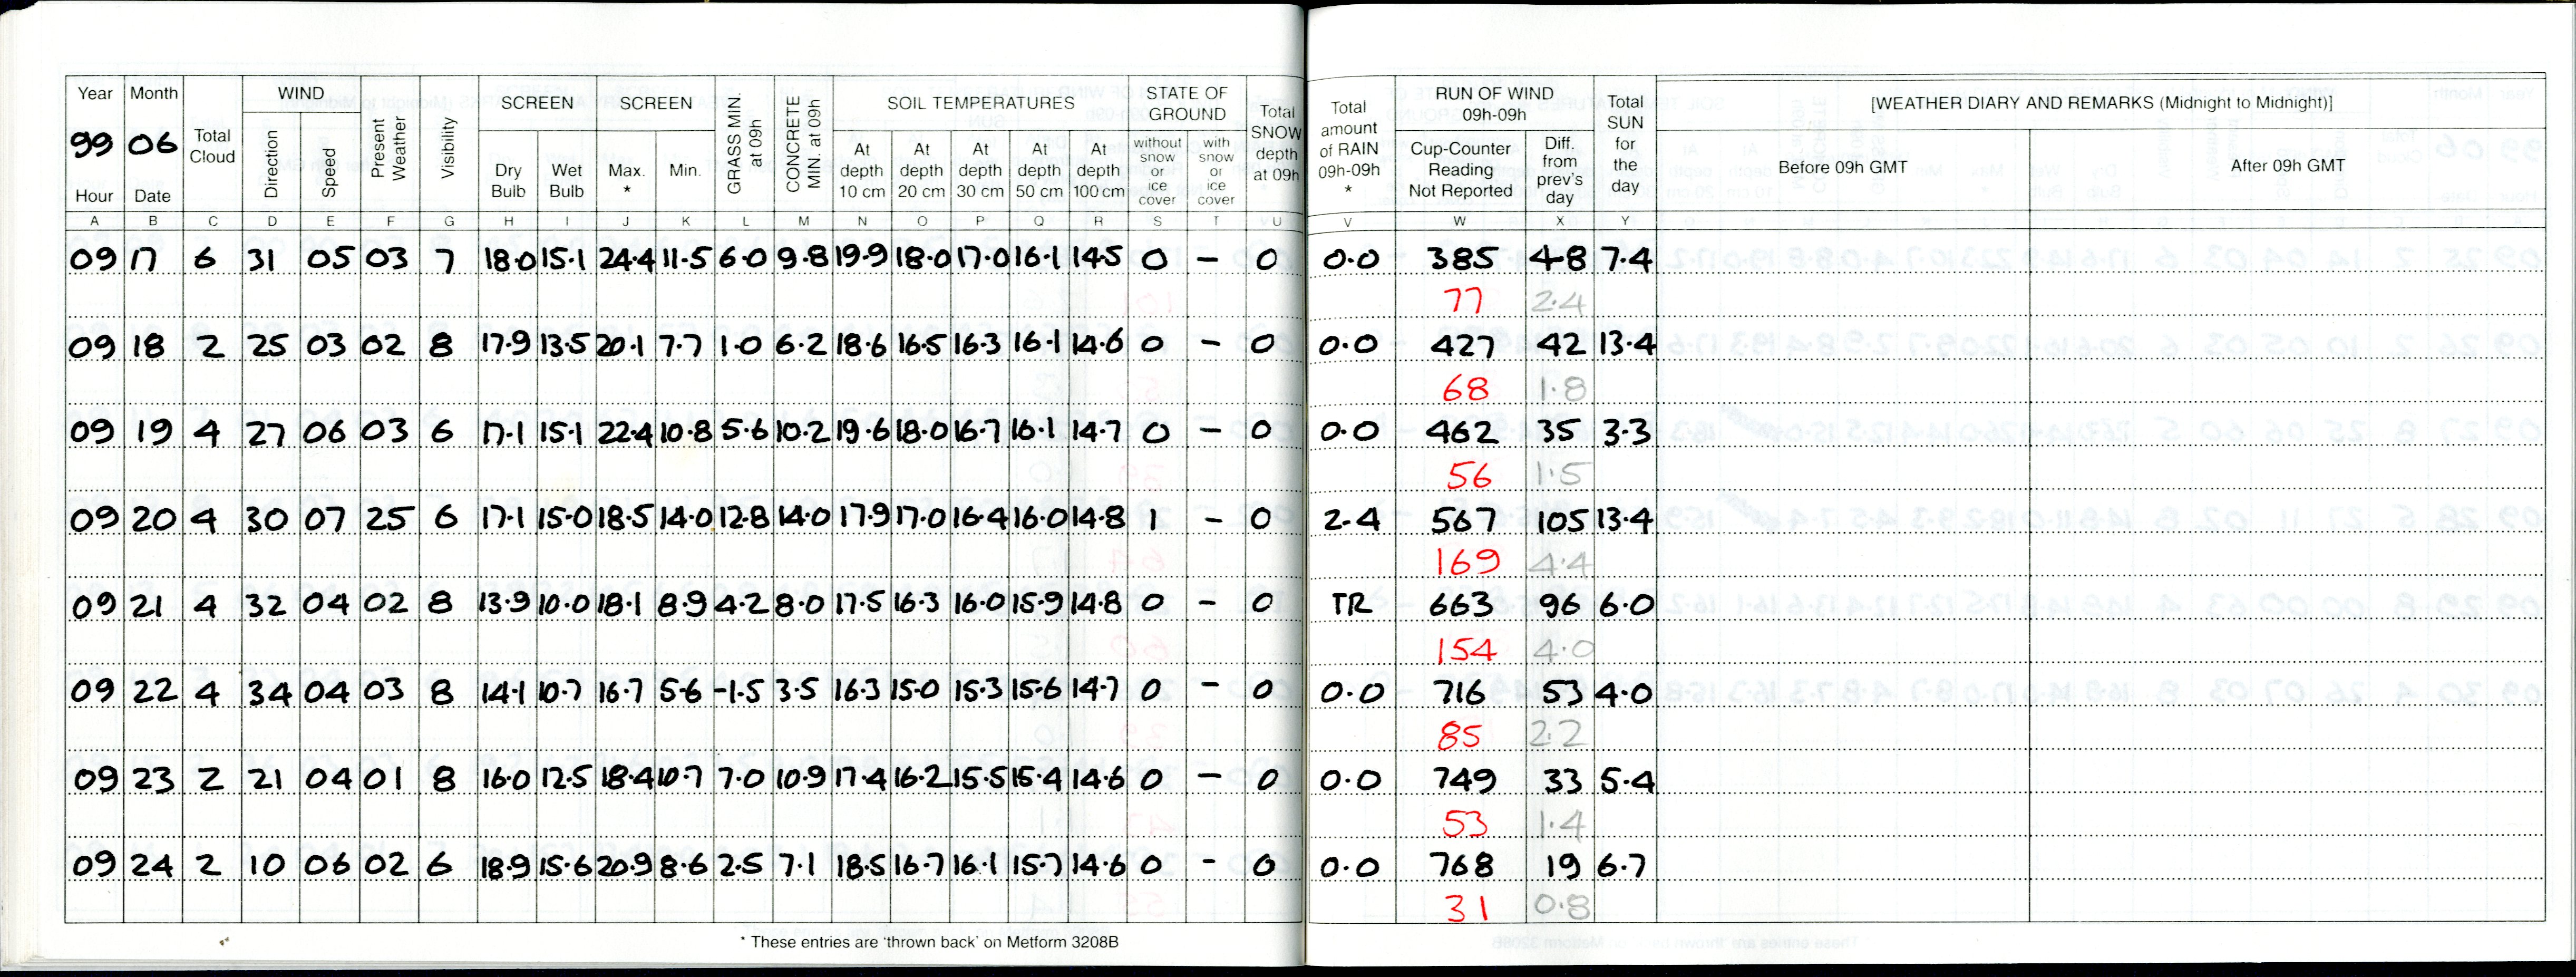 Year Month Total Cloud WIND Present Weather Visibility SCREEN SCREEN GRASS MIN. at 09h CONCRETE MIN. at 09h SOIL TEMPERATURES STATE OF GROUND Total SNOW depth at 09h Total amount of RAIN 09h-09h * RUN OF WIND 09h-09h Total SUN for the day [WEATHER DIARY AND REMARKS (Midnight to Midnight)]
99 06
Hour Date Direction Speed Dry Bulb Wet Bulb Max. * Min. At depth 10 cm At depth 20 cm At depth 30 cm At depth 50 cm At depth 100 cm without snow or ice cover with snow or ice cover Cup-Counter Reading Not Reported Diff. from prev's day Before 09h GMT After 09h GMT
A B C D E F G H I J K L M N O P Q R S T U V W X Y
09 17 6 31 05 03 7 18.0 15.1 24.4 11.5 6.0 9.8 19.9 18.0 17.0 16.1 14.5 0 - 0 0.0 385 48 7.4
77 2.4
09 18 2 25 03 02 8 17.9 13.5 20.1 7.7 1.0 6.2 18.6 16.5 16.3 16.1 14.6 0 - 0 0.0 427 42 13.4
68 1.8
09 19 4 27 06 03 6 17.1 15.1 22.4 10.8 5.6 10.2 19.6 18.0 16.7 16.1 14.7 0 - 0 0.0 462 35 3.3
56 1.5
09 20 4 30 07 25 6 17.1 15.0 18.5 14.0 12.8 14.0 17.9 17.0 16.4 16.0 14.8 1 - 0 2.4 567 105 13.4
169 4.4
09 21 4 32 04 02 8 13.9 10.0 18.1 8.9 4.2 8.0 17.5 16.3 16.0 15.9 14.8 0 - 0 TR 663 96 6.0
154 4.0
09 22 4 34 04 03 8 14.1 10.7 16.7 5.6 -1.5 3.5 16.3 15.0 15.3 15.6 14.7 0 - 0 0.0 716 53 4.0
85 2.2
09 23 2 21 04 01 8 16.0 12.5 18.4 10.7 7.0 10.9 17.4 16.2 15.5 15.4 14.6 0 - 0 0.0 749 33 5.4
53 1.4
09 24 2 10 06 02 6 18.9 15.6 20.9 8.6 2.5 7.1 18.5 16.7 16.1 15.7 14.6 0 - 0 0.0 768 19 6.7
31 0.8
* These entries are 'thrown back' on Metform 3208B